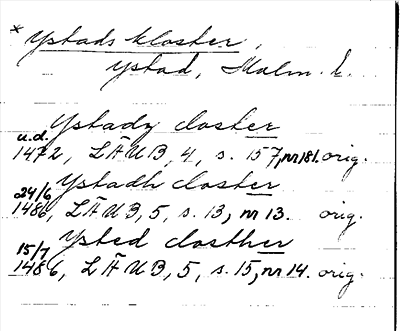 * Ystads kloster,
Ystad, Malm. l.
Ystadz closter
u.d.
1472, LÄUB, 4, s. 157, nr 181. orig.
Ystadh closter
24/6
1486, LÄUB, 5, s. 13, nr 13. orig.
Ysted closther
15/7
1486, LÄUB, 5, s. 15, nr 14. orig.